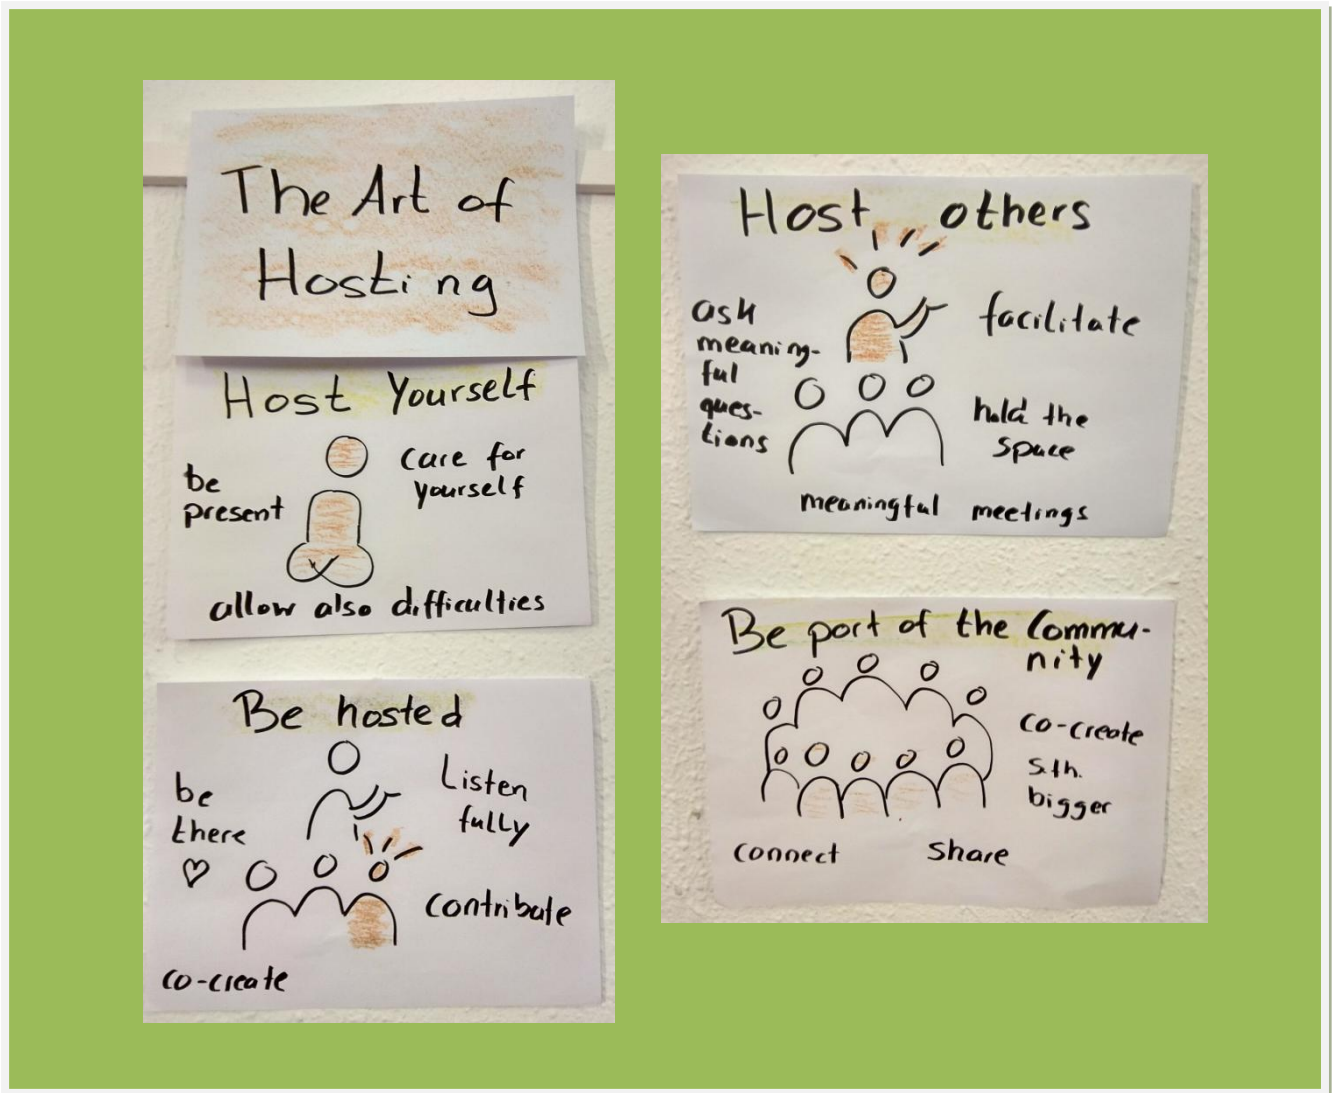 The Art of
Hosting
Host Yourself
be
present
care for
yourself
allow also difficulties
Be hosted
be
there
Listen
fully
contribute
co-create
Host others
ask
meaning-
ful
ques-
tions
facilitate
hold the
space
meaningful meetings
Be part of the Commu-
nity
co-create
s.th.
bigger
connect share